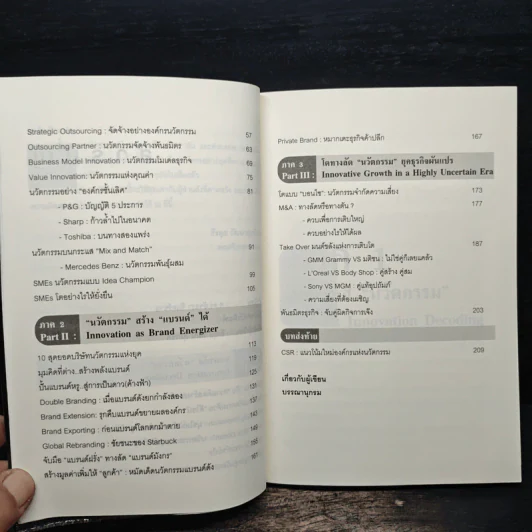 Strategic Outsourcing : จัดจ้างอย่างองค์กรนวัตกรรม 57
Outsourcing Partner : นวัตกรรมจัดจ้างพันธมิตร 63
Business Model Innovation : นวัตกรรมโมเดลธุรกิจ 69
Value Innovation: นวัตกรรมแห่งคุณค่า 75
นวัตกรรมอย่าง "องค์กรชั้นเลิศ" 81
- P&G : บัญญัติ 5 ประการ
- Sharp : ก้าวล้ำไปในอนาคต
- Toshiba : บนทางสองแพร่ง
นวัตกรรมบนกระแส "Mix and Match" 91
- Mercedes Benz : นวัตกรรมพันธุ์ผสม
SMEs นวัตกรรมแบบ Idea Champion 99
SMEs โตอย่างไรให้ยั่งยืน 105
ภาค 2 "นวัตกรรม" สร้าง "แบรนด์" ได้
Part II : Innovation as Brand Energizer
10 สุดยอดบริษัทนวัตกรรมแห่งยุค 113
มุมคิดที่ต่าง..สร้างพลังแบรนด์ 119
ปั้นแบรนด์หรู..สู่การเป็นดาว(ค้างฟ้า) 125
Double Branding : เมื่อแบรนด์ดังยกกำลังสอง 131
Brand Extension: รุกคืบแบรนด์ขยายผลองค์กร 137
Brand Exporting : ก่อนแบรนด์โลกตกม้าตาย 143
Global Rebranding : ชัยชนะของ Starbuck 149
จับมือ "แบรนด์ฝรั่ง" ทางลัด "แบรนด์มังกร"
สร้างมูลค่าเพิ่มให้ "ลูกค้า" : หมัดเด็ดนวัตกรรมแบรนด์ดัง 161
Private Brand : หมากเตะธุรกิจค้าปลีก 167
ภาค 3 โตทางลัด "นวัตกรรม" ยุคธุรกิจผันแปร
Part III : Innovative Growth in a Highly Uncertain Era
โตแบบ "บอนไซ": นวัตกรรมจำกัดความเสี่ยง 173
M&A : ทางลัดหรือทางตัน ? 177
- ควบเพื่อการเติบใหญ่
- ควบอย่างไรให้ได้ผล
Take Over มนต์ขลังแห่งการเติบโต 187
- GMM Grammy VS มติชน : ไม่ใช่คู่กัดแต่แล้ว
- L'Oreal VS Body Shop : คู่สร้าง คู่สม
- Sony VS MGM : คู่แท้ยูปิมักก์
- ความเสี่ยงที่ต้องเผชิญ
พันธมิตรธุรกิจ : จับคู่พิชิตภารกิจการเจ๊ง 203
บทส่งท้าย
CSR : แนวโน้มใหม่องค์กรแห่งนวัตกรรม 209
เกี่ยวกับผู้เขียน
บรรณานุกรม